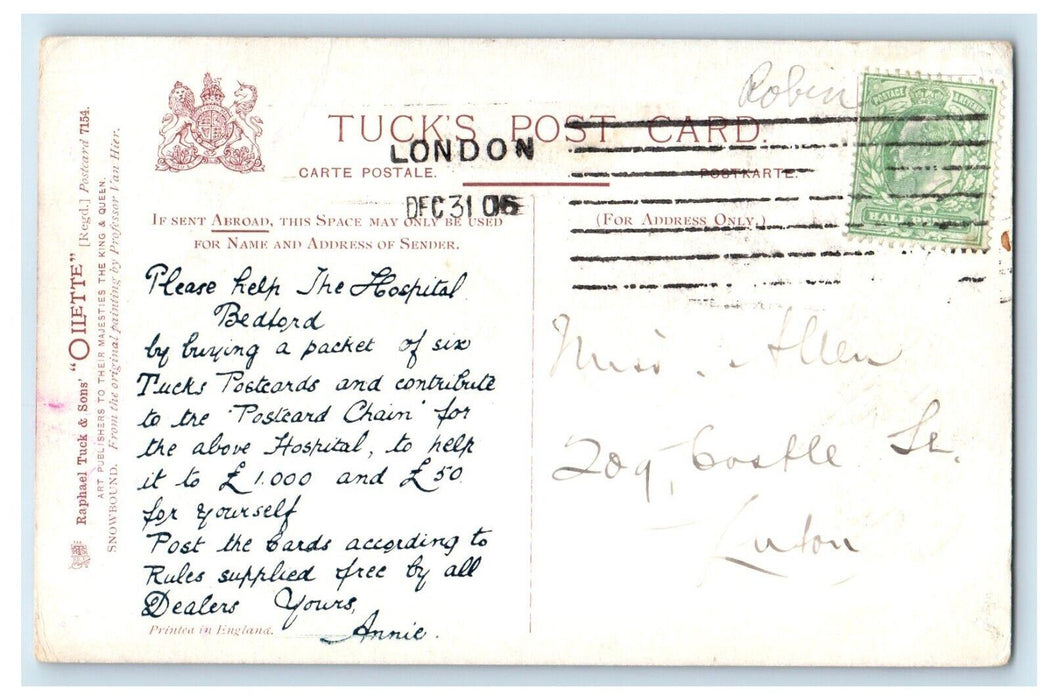 Robin
TUCK'S POST CARD.
LONDON
CARTE POSTALE. POSTKARTE.
DEC 31 06
IF SENT ABROAD, THIS SPACE MAY ONLY BE USED
FOR NAME AND ADDRESS OF SENDER.
(FOR ADDRESS ONLY.)
POSTAGE REVENUE
HALF
Raphael Tuck & Sons' "OILETTE" [Regd.] Postcard 7154.
ART PUBLISHERS TO THEIR MAJESTIES THE KING & QUEEN.
SNOWBOUND. From the original painting by Professor Van Hier.
Please help The Hospital
Bedford
by buying a packet of six
Tucks Postcards and contribute
to the 'Postcard Chain' for
the above Hospital, to help
it to £1.000 and £50
for yourself
Post the Cards according to
Rules supplied free by all
Dealers Yours,
Annie.
Printed in England.
Miss. Allen
209, Castle St.
Luton